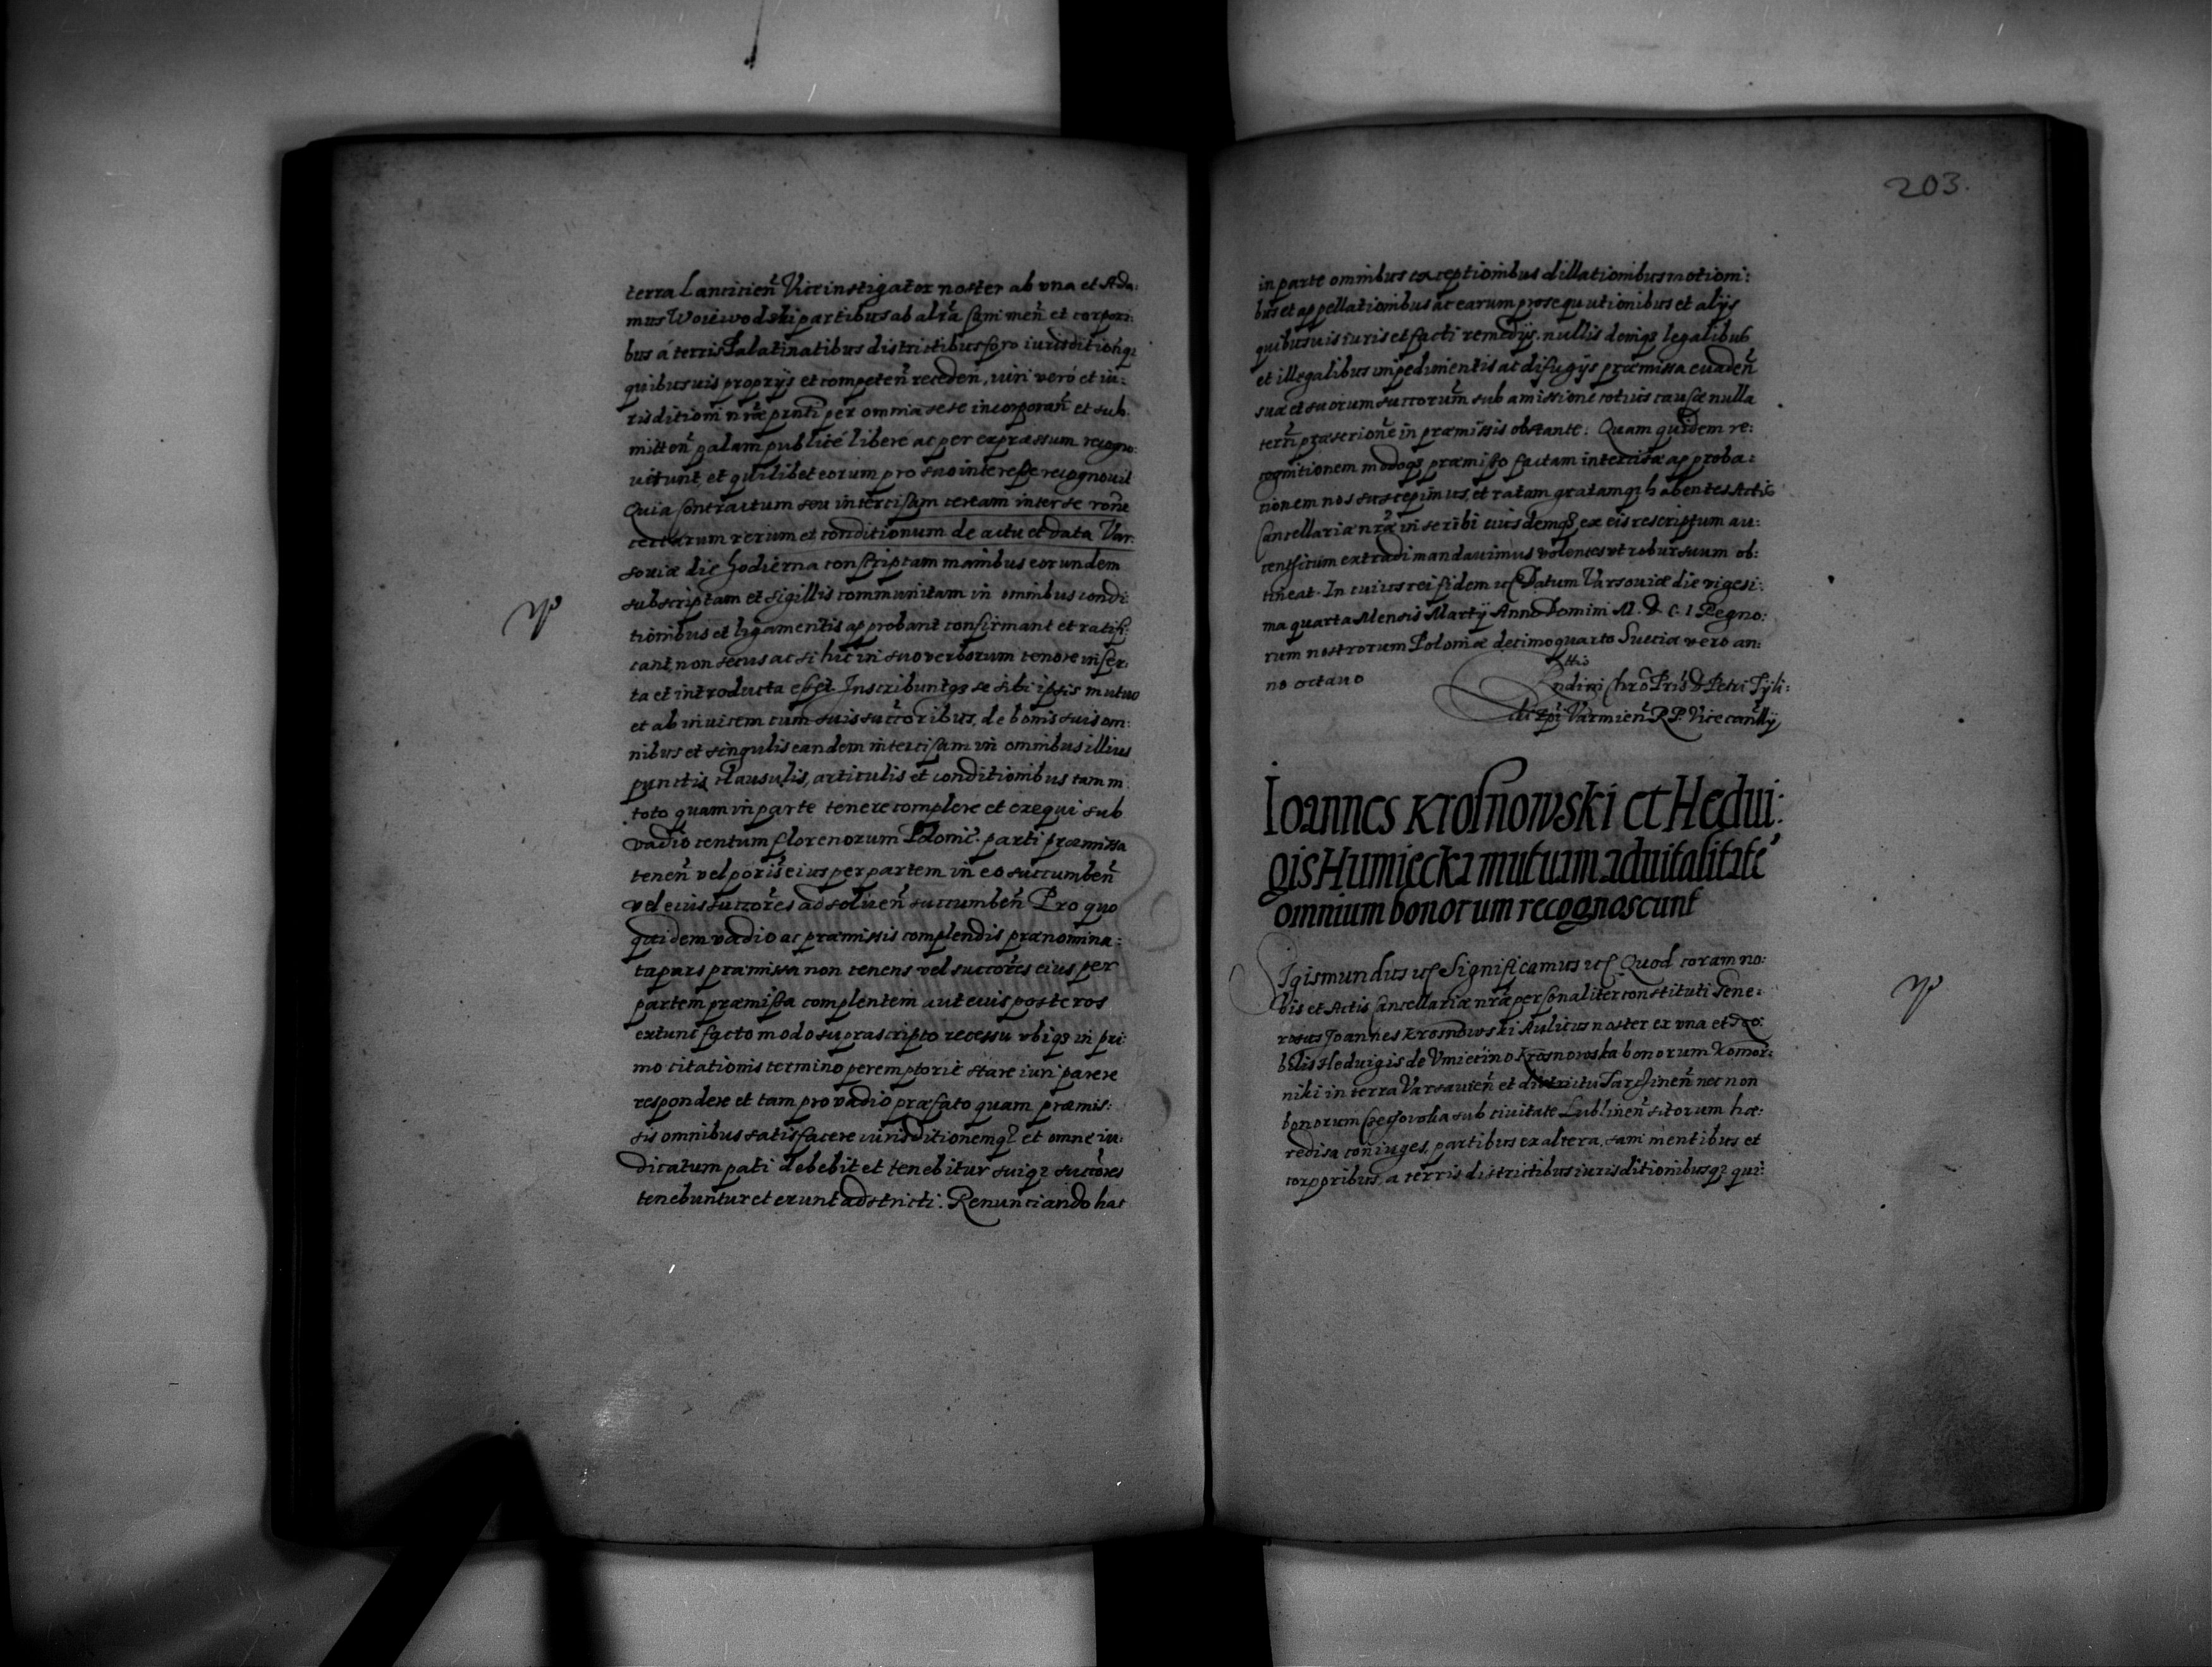 terra Lancicieñ Viceinstigator noster ab vna et Ada:
mus Woiewodski partibus ab alr̃a sani meñ et corpori:
bus á terris Palatinatibus districtibus foro iurisditionq3
quibusuis proprijs et competeñ receden, uiri veró et iu:
risditioni nr̃æ pñti per omnia sese incorporañ et sub
mitteñ palam publicé libere ac per expræssum recogno:
uerunt, et quilibet eorum pro suo interesse recognouit
Quia contractum seu intercisam ceream inter se roñe
certarum rerum et conditionum de actu et data Var:
souiæ die hodierna conscriptam manibus eorundem
subscriptam et sigillis communitam in omnibus condi
tionibus et ligamentis approbant confirmant et ratifi:
cant, non secus ac si hic in suo verborum tenore inser:
ta et introducta esset. Inscribuntq3 se sibi ipsis mutuo
et ab inuicem cum suis succ̃oribus, de bonis suis om:
nibus et singulis eandem intercisam in omnibus illius
punctis clausulis, articulis et conditionibus tam in
toto quam in parte tenere complere et exequi sub
vadio centum florenorum Poloniĉ. parti præmissa
teneñ vel poris̃ eius per partem in eo succumbeñ
vel eius succor̃es ad solueñ succumbeñ Pro quo
quidem vadio ac præmissis complendis prænomina:
ta pars præmissa non tenens vel succor̃es eius per
partem præmissa complentem aut euis posteros
extunc facto modo suprascripto recessu vbiq3 in pri:
mo citationis termino peremptorié stare iuri parere
respondere et tam pro vadio præfato quam præmis:
sis omnibus satisfacere iurisditionemq3 et omne iu:
dicatum pati debebit et tenebitur suiq3 succor̃es
tenebuntur et erunt adstricti. Renunciando hac
203.
in parte omnibus exceptionibus dillationibus motioni:
bus et appellationibus ac earum prosequutionibus et alijs
quibusuis iuris et facti remedijs, nullis deniq3 legalibus
et illegalibus impedimentis ac difugijs præmissa euadeñ
sua et suorum succorum̃ sub amissione totius causæ nulla
terrñ præscrione in præmissis obstante: Quam quidem re:
cognitionem modoq3 præmisso factam intercisæ approba:
tionem nos suscepimus, et ratam gratamq3 habentes Actis
Cancellariæ nr̃æ inseribi eiusdemq3 ex eis rescriptum au:
tenticum extradi mandauimus volentes vt robur suum ob:
tineat. In cuius rei fidem etc Datum Varsouiæ die vigesi:
ma quarta Mensis Martij Anno Domini M. D. C. I Regno:
rum nostrorum Poloniæ decimoquarto Sueciæ vero an:
no octauo
Rndini Chrō Pris D Petri Tyli:
cki Epi Varmieñ R P. Vicecanllrij
Ioannes Krosnowski et Hedui:
gis Humiecka mutuam aduitalitate
omnium bonorum recognoscunt
Sigismundus etc Significamus etc Quod coram no:
bis et Actis Cancellariæ nr̃æ personaliter constituti Gene:
rosus Joannes Krosnowski Aulicus noster ex vna et No:
bilis Heduigis de Vmiecino Krosnowska bonorum Komor:
niki in terra Varsauieñ et districtu Tarczineñ nec non
bonorum sub ciuitate Lublineñ sitorum hæ:
redisa coniuges, partibus ex altera, sani mentibus et
corporibus, a terris districtibus iurisditionibusq3 qui: